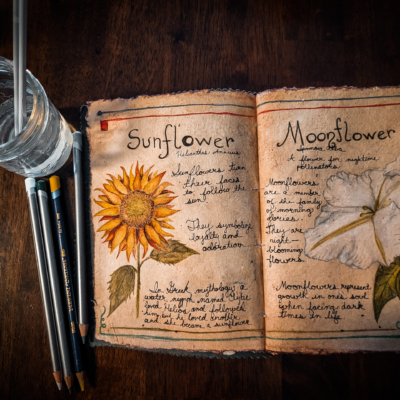 Sunflower
Helianthus annuus
Sunflowers turn
their faces
to follow the
sun.
They symbolize
loyalty and
adoration.
In Greek mythology a
water nymph named Clytie
loved Helios and followed
him, but he loved another
and she became a sunflower.
Moonflower
A flower for nighttime
pollinators.
Moonflowers
are a member
of the family
of morning
glories.
They are
night-
blooming
flowers.
Moonflowers represent
growth in one's soul
when facing dark
times in life.